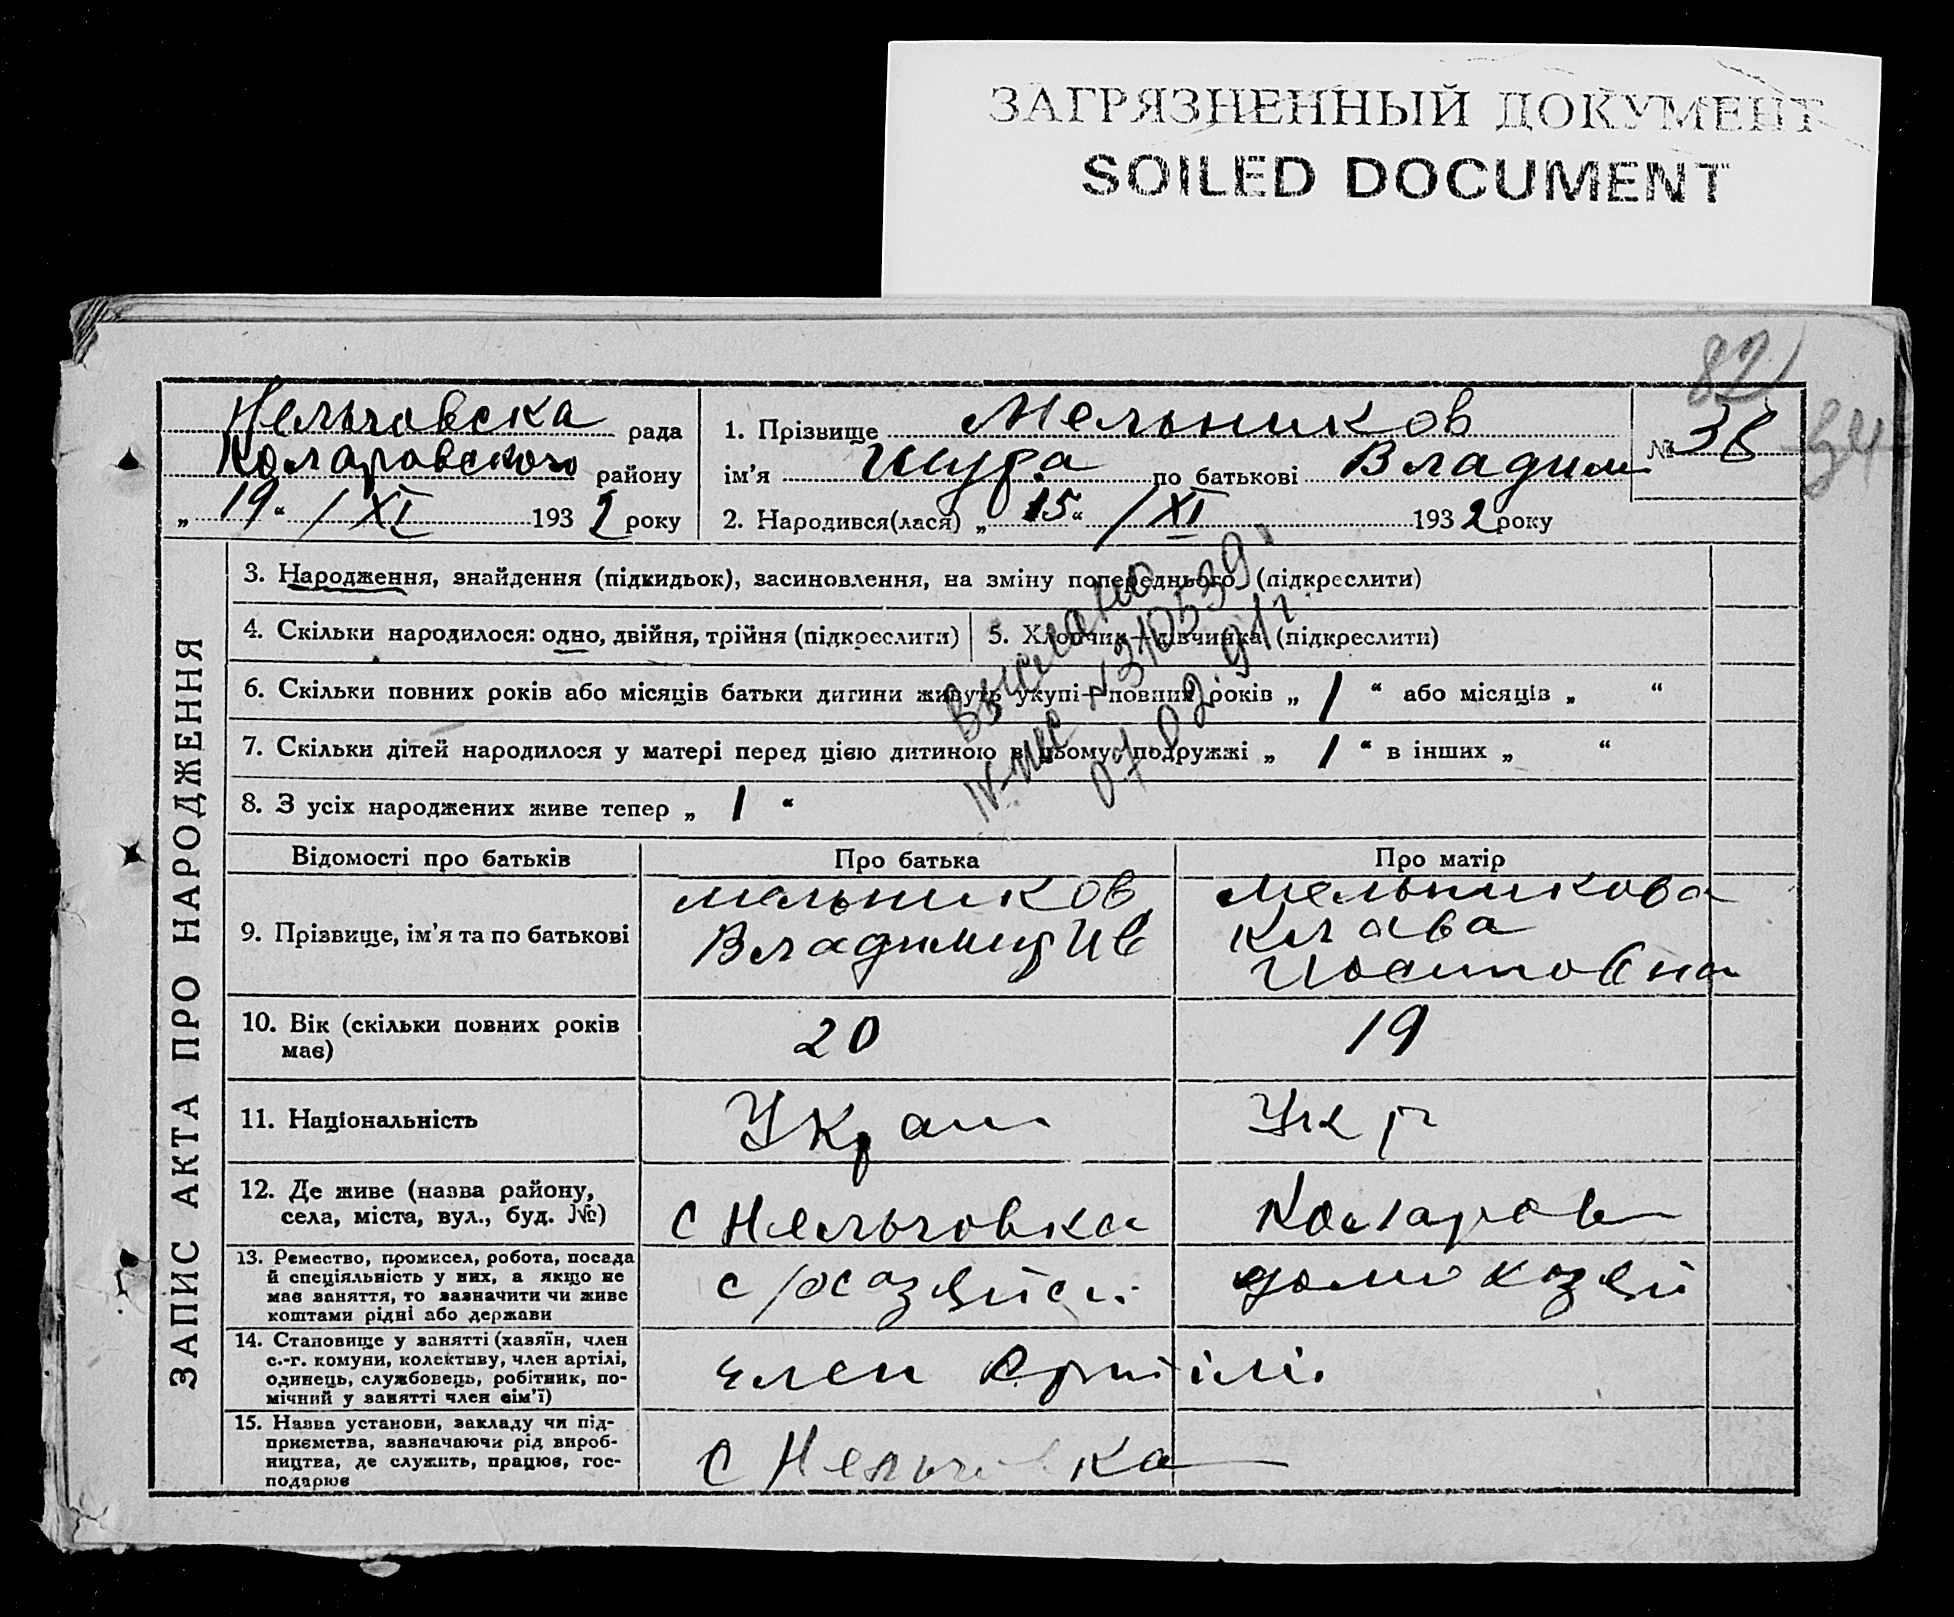 ЗАГРЯЗНЕННЫЙ ДОКУМЕНТ
SOILED DOCUMENT
82
34
Нельговска рада
Коларовского району
„ 19 “ / XI 1932 року
1. Прізвище Мельников
ім’я Шура по батькові Владим
2. Народився(лася) „ 15 “ / XI 1932 року
№ 38
ЗАПИС АКТА ПРО НАРОДЖЕННЯ
3. Народження, знайдення (підкидьок), васиновлення, на зміну попереднього (підкреслити)
4. Скільки народилося: одно, двійня, трійня (підкреслити)
5. Хлопчик—дівчинка (підкреслити)
6. Скільки повних років або місяців батьки дитини живуть укупі— повних років „ 1 “ або місяців „ “
7. Скільки дітей народилося у матері перед цією дитиною в цьому подружжі „ 1 “ в інших „ “
8. З усіх народжених живе тепер „ 1 “
310539
07 02. 91г.
Відомості про батьків
Про батька
Про матір
9. Прізвище, ім’я та по батькові
Мельников
Владимир Ив
Мельникова
Клава
10. Вік (скільки повних років
має)
20
19
11. Національність
Украин
Укр
12. Де живе (назва району,
села, міста, вул., буд. №)
с Нельговка
Коларов
13. Ремество, промисел, робота, посада
й спеціяльність у них, а якщо не
має заняття, то зазначити чи живе
коштами рідні або держави
14. Становище у занятті (хазяїн, член
с.-г. комуни, колективу, член артілі,
одинець, службовець, робітник, по-
мічний у занятті член сім’ї)
член Артілі
15. Назва установи, закладу чи під-
приємства, зазначаючи рід вироб-
ництва, де служить, працює, гос-
подарює
с Нельговка